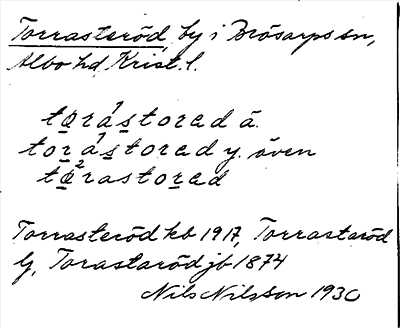 Torrasteröd, by i Brösarps sn,
Albo hd, Krist. l.
torástorad ä.
torástorad y. även
to²rastorad
Torrasteröd kb 1917, Torrastaröd
Torastaröd jb 1874
Nils Nilsson 1930